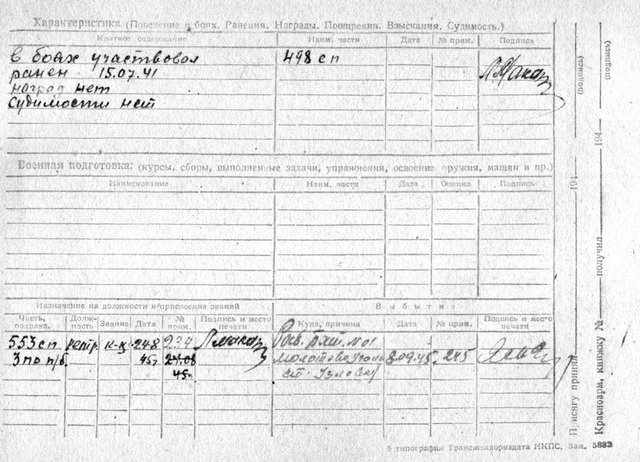 Характеристика (Поведение в боях. Ранения. Награды. Поощрения. Взыскания. Судимость.)
Краткое содержание Наим. части Дата № прик. Подпись
в боях участвовал 498 сп
ранен 15.07.41
наград нет
Судимости нет
Военная подготовка: (курсы, сборы, выполненные задачи, упражнения, освоение оружия, машин и пр.)
Наименование Наим. части Дата Оценка Подпись
Назначение на должности и присвоение званий Выбытие
Часть, подразд. Долж-ность Звание Дата № прик. Подпись и место печати Куда, причина Дата № прик. Подпись и место печати
553 сп 248 234
3 по п/б 45 24.08 8.09.45 245
45 ст. Узловая
(подпись) (подпись)
Присягу принял 194
Красноарм. книжку № получил 194
5 типография Трансжелдориздата НКПС. Зак. 5883